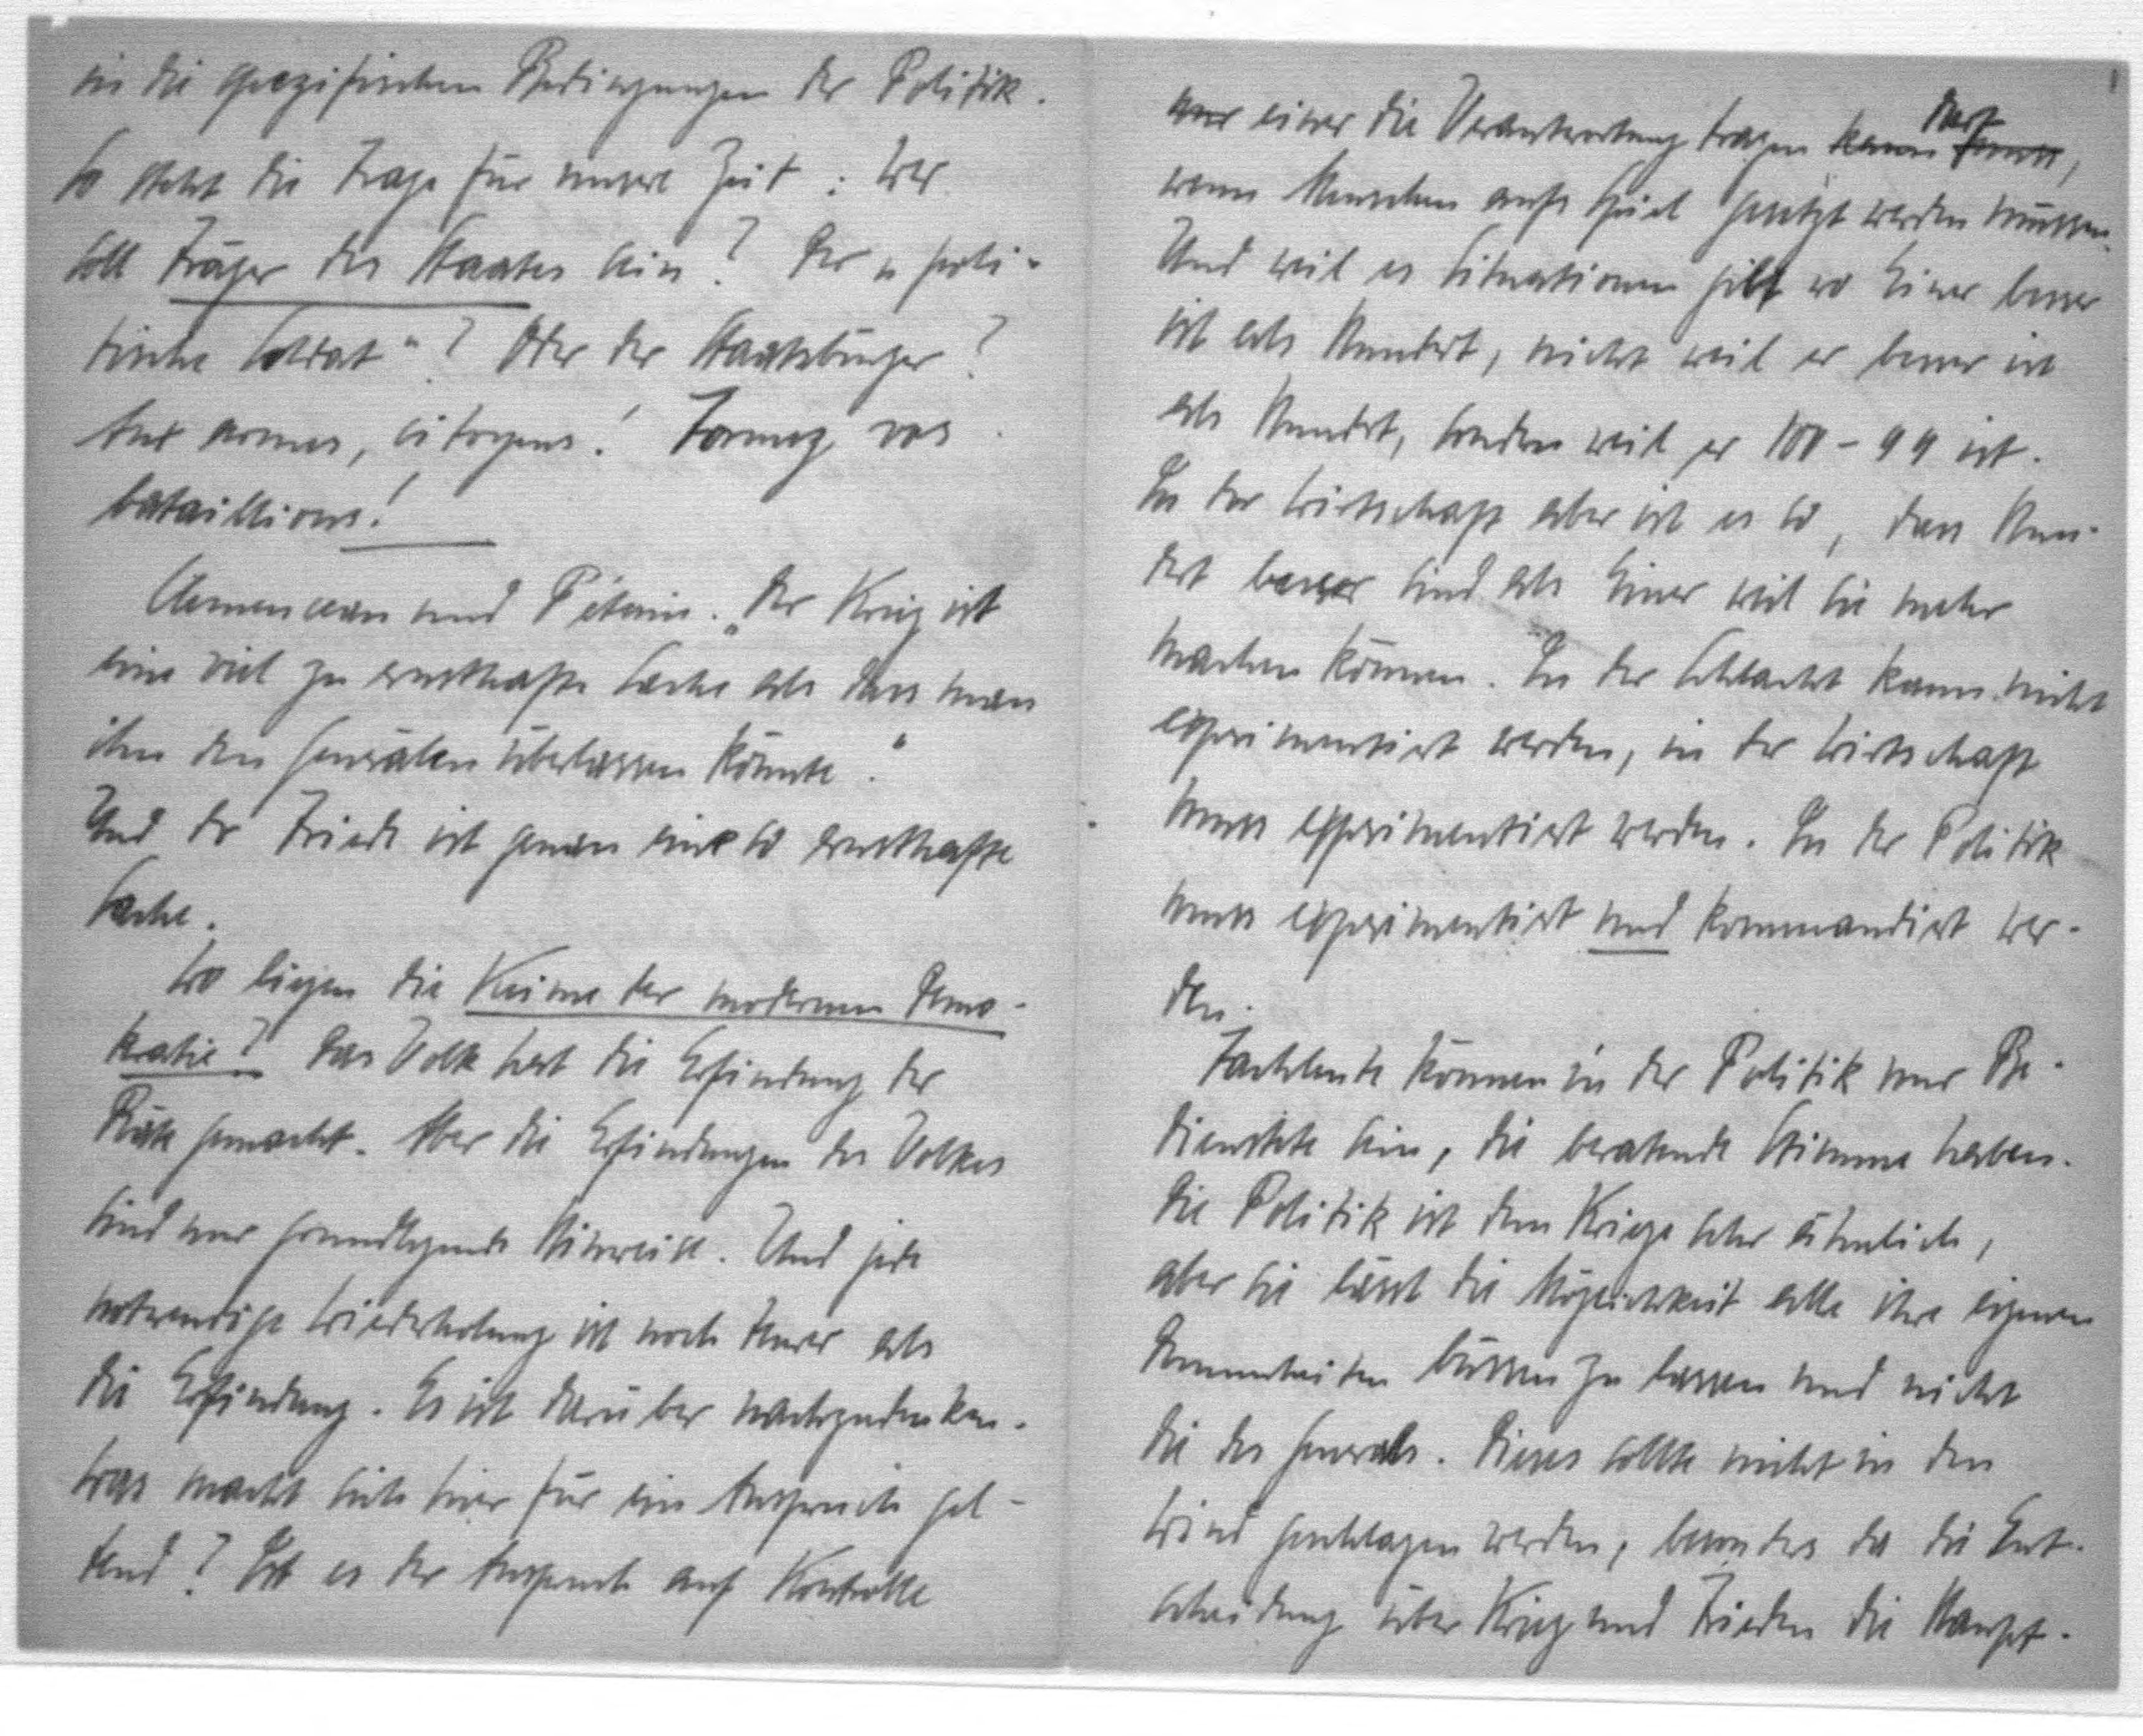 in die spezifischen Bedingungen der Politik.
So steht die Frage für unsere Zeit: Wer
soll Träger des Staates sein? Der „poli-
tische Soldat“? Oder der Staatsbürger?
Aux armes, citoyens! Formez vos
bataillions!
Clemenceau und Pétain. „Der Krieg ist
eine viel zu ernsthafte Sache als dass man
ihn den Generälen überlassen könnte.“
Und der Friede ist genau eine so ernsthafte
Sache.
Wo liegen die Keime der modernen Demo-
kratie? Das Volk hat die Erfindung der
Räte gemacht. Aber die Erfindungen des Volkes
sind nur grundlegende Hinweise. Und jede
notwendige Wiederholung ist noch teurer als
die Erfindung. Es ist darüber nachzudenken.
Was macht sich hier für ein Anspruch gel-
tend? Ist es der Anspruch auf Kontrolle
nur einer die Verantwortung tragen kann muss darf,
wenn Menschen aufs Spiel gesetzt werden müssen.
Und weil es Situationen gibt wo Einer besser
ist als Hundert, nicht weil er besser ist
als Hundert, sondern weil er 100-99 ist.
In der Wirtschaft aber ist es so, dass Hun-
dert besser sind als Einer weil sie mehr
machen können. In der Schlacht kann nicht
experimentiert werden, in der Wirtschaft
muss experimentiert werden. In der Politik
muss experimentiert und kommandiert wer-
den.
Fachleute können in der Politik nur Be-
dienstete sein, die beratende Stimme haben.
Die Politik ist dem Kriege sehr ähnlich,
aber sie lässt die Möglichkeit alle ihre eigenen
Dummheiten büssen zu lassen und nicht
die des Generals. Dieses sollte nicht in den
Wind geschlagen werden, besonders da die Ent-
scheidung über Krieg und Frieden die Haupt-